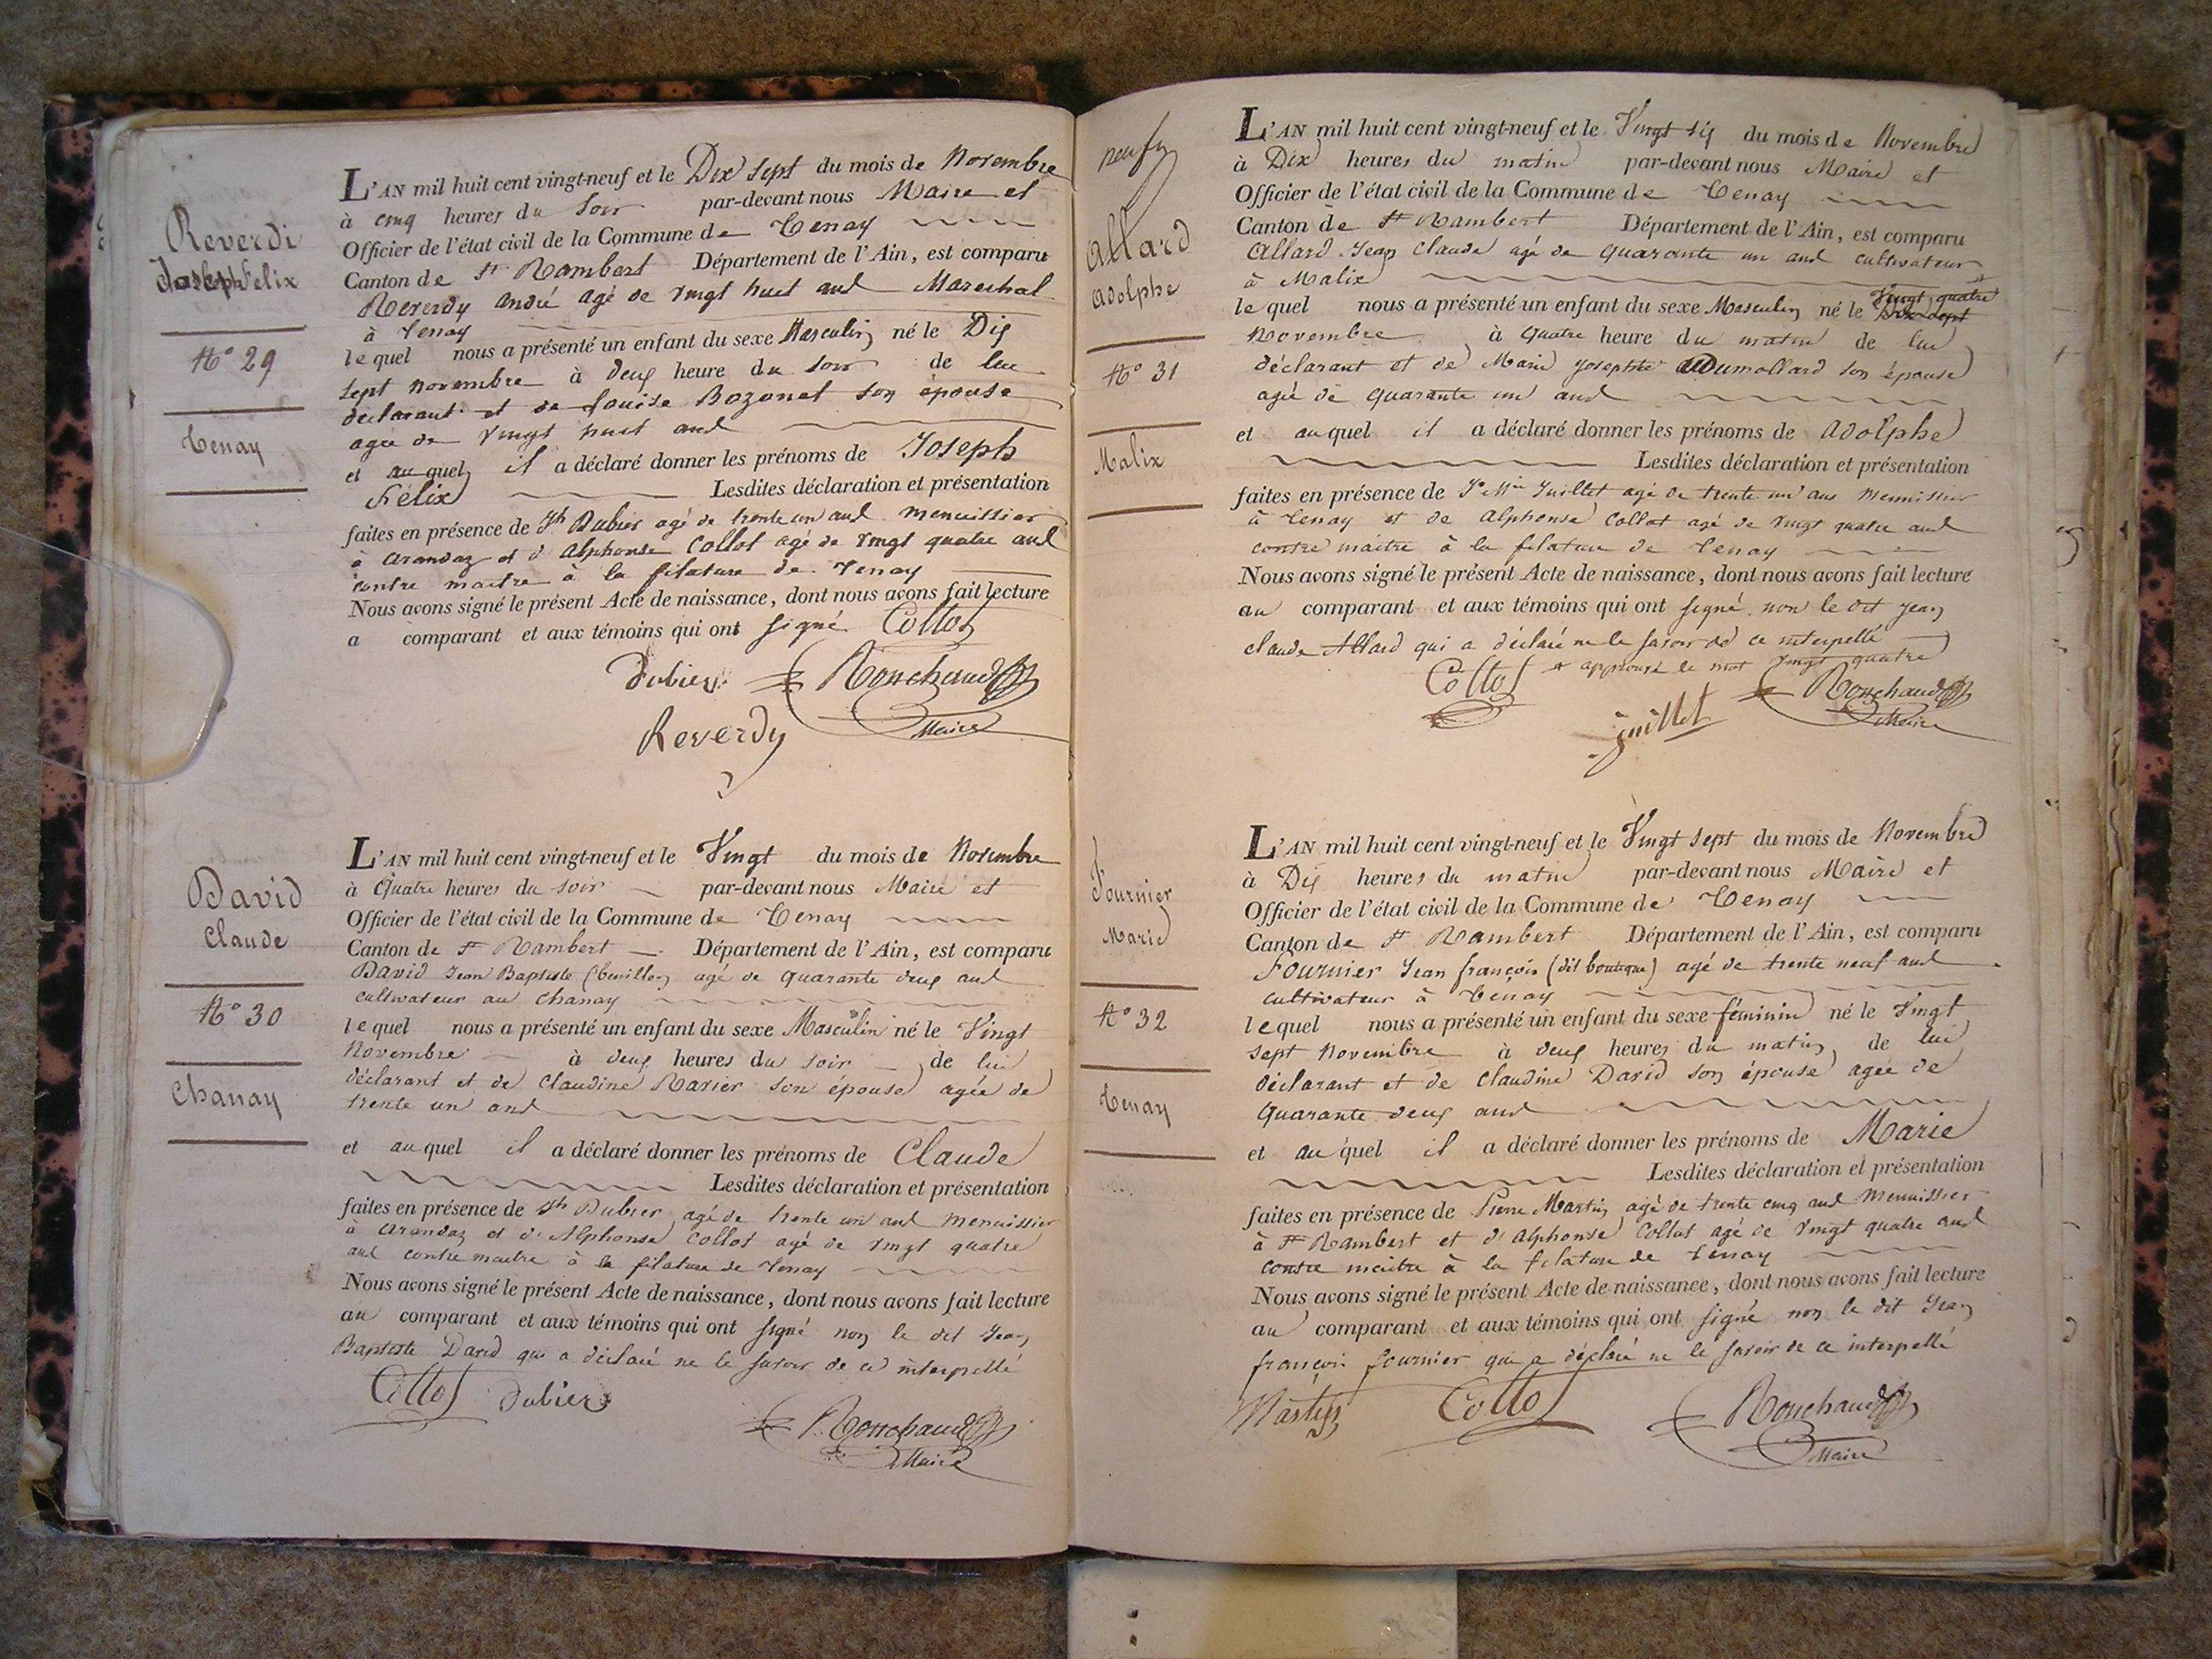 Reverdi
Joseph Felix
N° 29
Tenay
L'AN mil huit cent vingt-neuf et le Dix sept du mois de Novembre
à cinq heures du soir par-devant nous Maire et
Officier de l'état civil de la Commune de Tenay
Canton de St Rambert Département de l'Ain, est comparu
Reverdy andré agé de vingt huit ans Marechal
à Tenay
lequel nous a présenté un enfant du sexe Masculin né le Dix
sept novembre à deux heure du soir de lui
declarant et de Louise Bozonet son épouse
agée de vingt huit ans
et au quel il a déclaré donner les prénoms de Joseph
Félix Lesdites déclaration et présentation
faites en présence de Jh Dubier agé de trente un ans menuissier
à arandaz et d'alphonse Collot agé de vingt quatre ans
contre maitre à la filature de Tenay
Nous avons signé le présent Acte de naissance, dont nous avons fait lecture
a comparant et aux témoins qui ont signé Collot
Dubier Ronchaud
Maire
Reverdy
David
Claude
N° 30
Chanay
L'AN mil huit cent vingt-neuf et le Vingt du mois de Novembre
à Quatre heures du soir par-devant nous Maire et
Officier de l'état civil de la Commune de Tenay
Canton de St Rambert Département de l'Ain, est comparu
David Jean Baptiste agé de quarante deux ans
cultivateur au Chanay
lequel nous a présenté un enfant du sexe Masculin né le Vingt
Novembre à deux heures du soir de lui
déclarant et de Claudine Ravier son épouse agée de
trente un ans
et au quel il a déclaré donner les prénoms de Claude
Lesdites déclaration et présentation
faites en présence de Jh Dubier agé de trente un ans menuissier
à arandaz et d'Alphonse Collot agé de vingt quatre
ans contre maitre à la filature de Tenay
Nous avons signé le présent Acte de naissance, dont nous avons fait lecture
au comparant et aux témoins qui ont signé non le dit Jean
Baptiste David qui a déclaré ne le savoir de ce interpellé
Collot Dubier
Ronchaud
Maire
neuf
Allard
Adolphe
N° 31
Malix
L'AN mil huit cent vingt-neuf et le Vingt six du mois de Novembre
à Dix heures du matin par-devant nous Maire et
Officier de l'état civil de la Commune de Tenay
Canton de St Rambert Département de l'Ain, est comparu
Allard Jean Claude agé de quarante un ans cultivateur
à Malix
Vingt quatre
lequel nous a présenté un enfant du sexe Masculin né le Dix sept
Novembre à quatre heure du matin de lui
déclarant et de Marie Josephte Dumollard son épouse
agée de quarante un ans
et auquel il a déclaré donner les prénoms de Adolphe
Lesdites déclaration et présentation
faites en présence de Juillet agé de trente un ans menuissier
à Tenay et de Alphonse Collot agé de vingt quatre ans
contre maitre à la filature de Tenay
Nous avons signé le présent Acte de naissance, dont nous avons fait lecture
au comparant et aux témoins qui ont signé non le dit Jean
claude Allard qui a déclaré ne le savoir de ce interpellé
approuvé le mot vingt quatre
Collot Ronchaud
Juillet Maire
Fournier
Marie
N° 32
Tenay
L'AN mil huit cent vingt-neuf et le Vingt sept du mois de Novembre
à Dix heures du matin par-devant nous Maire et
Officier de l'état civil de la Commune de Tenay
Canton de St Rambert Département de l'Ain, est comparu
Fournier Jean françois (dit boutique) agé de trente neuf ans
cultivateur à Tenay
lequel nous a présenté un enfant du sexe féminin né le Vingt
sept Novembre à deux heures du matin de lui
déclarant et de Claudine David son épouse agée de
quarante deux ans
et au quel il a déclaré donner les prénoms de Marie
Lesdites déclaration et présentation
faites en présence de Pierre Martin agé de trente cinq ans menuissier
à St Rambert et d'alphonse Collot agé de vingt quatre ans
contre maitre à la filature de Tenay
Nous avons signé le présent Acte de naissance, dont nous avons fait lecture
au comparant et aux témoins qui ont signé non le dit Jean
françois fournier qui a déclaré ne le savoir de ce interpellé
Martin Collot Ronchaud
Maire